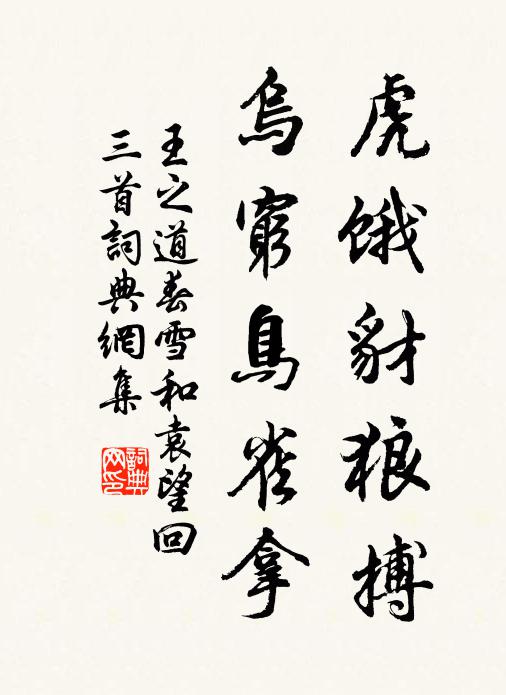 虎餓豺狼搏
烏窮鳥雀拿
王之道春雪和袁望回
三首詞典網集
詞典网印